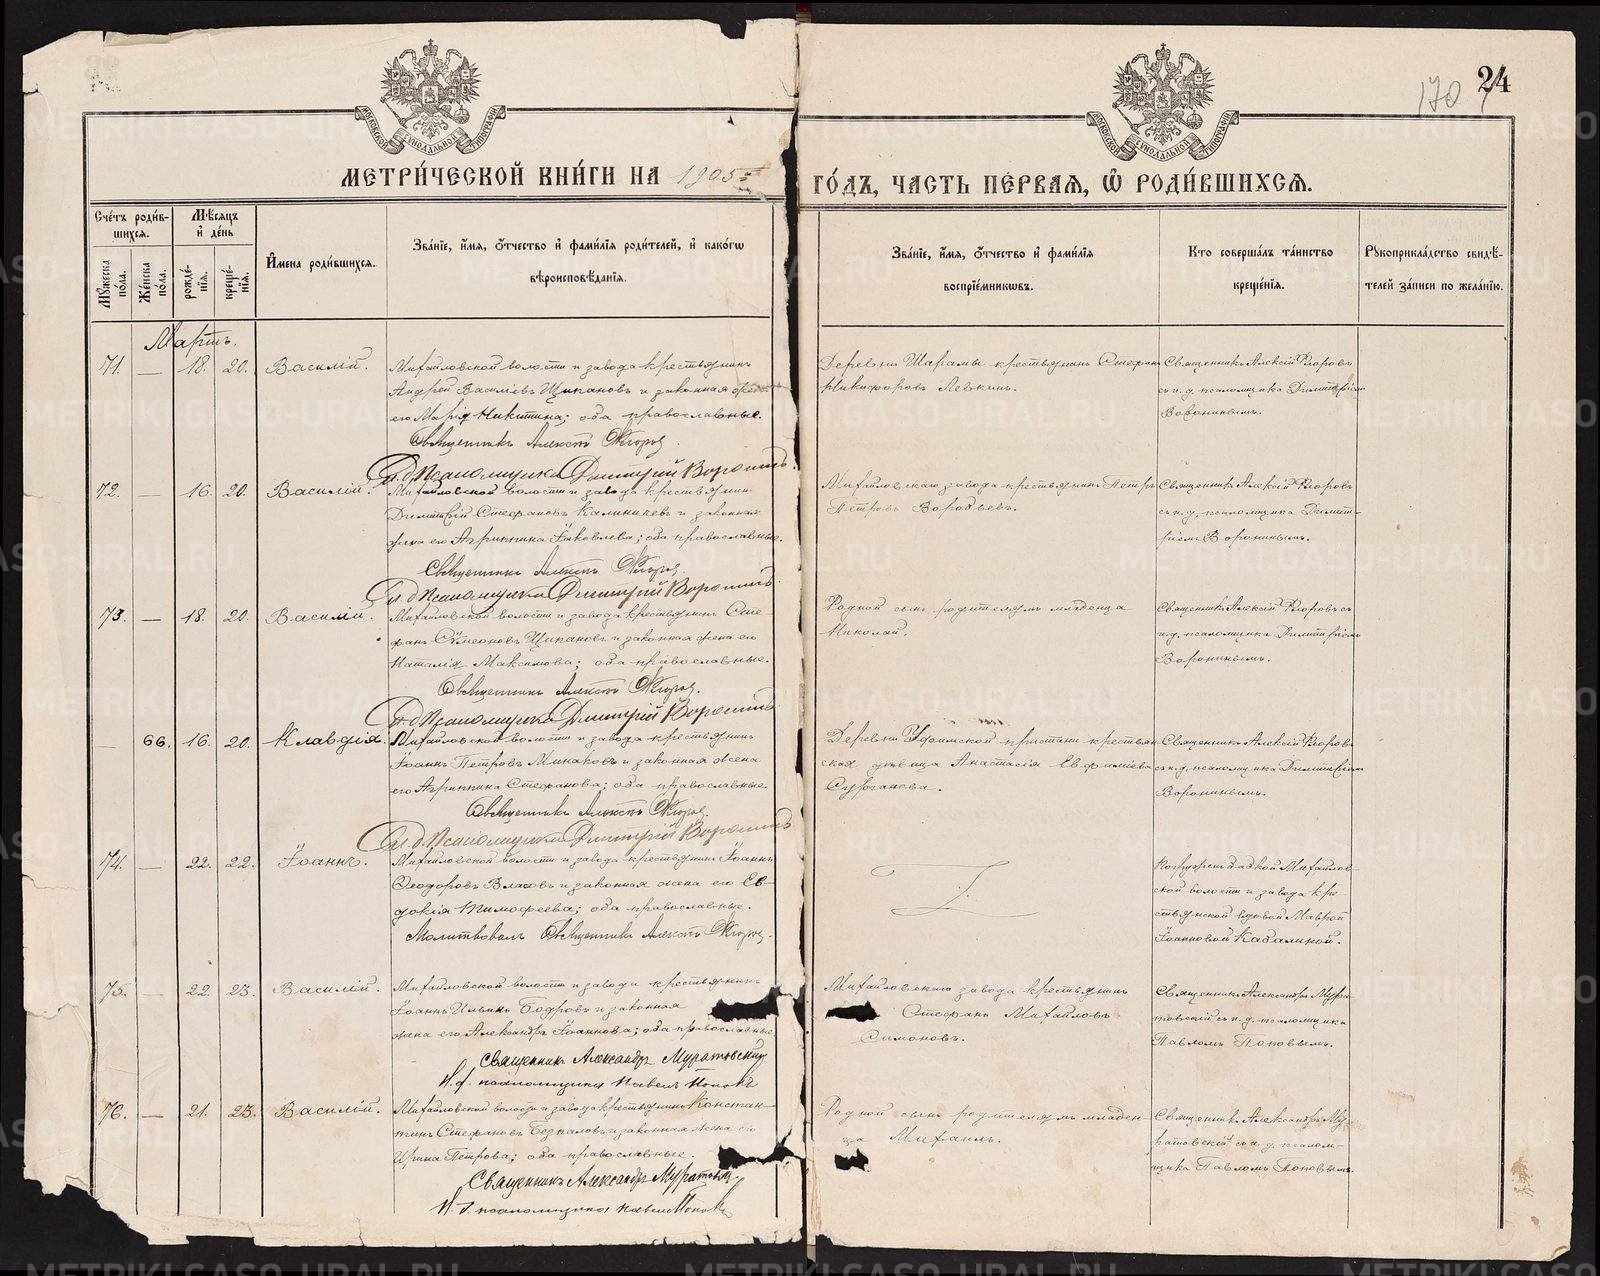 170 24
МЕТРИ́ЧЕСКОЙ КНИ́ГИ НА 1905 ГО́ДЪ, ЧАСТЬ ПЕ́РВАЯ, Ѡ҆ РОДИ́ВШИХСЯ.
МОСКОВСКОЙ СѴНОДАЛЬНОЙ ТИПОГРАФІИ
МОСКОВСКОЙ СѴНОДАЛЬНОЙ ТИПОГРАФІИ
Сче́тъ роди́в-
шихся.
Мꙋ́жеска по́ла.
Же́нска по́ла.
Мѣ́сяцъ
и҆ де́нь
рожде́-
нія.
креще́-
нія.
И҆мена роди́вшихся.
Зва́ніе, и҆́мя, ѻ҆́тчество и҆ фами́лія роди́телей, и҆ како́гѡ
вѣроисповѣ́данія.
Зва́ніе, и҆́мя, ѻ҆́тчество и҆ фами́лія
воспрїе́мникѡвъ.
Кто соверша́лъ та́инство
креще́нія.
Рꙋкоприкла́дство свидѣ́-
телей за́писи по жела́нію.
Мартъ.
71. — 18. 20. Василій.
Михайловской волости и завода крестьянинъ
Андрей Василіевъ Щипановъ и законная жена
его Марія Никитина; оба православные.
Священникъ Алексѣй Флоровъ.
И. д. Псаломщика Дмитрій Воронинъ.
Деревни Шарамы крестьянинъ Стефанъ
Никифоровъ Левкинъ.
Священникъ Алексій Флоровъ
съ и. д. псаломщика Димитріемъ
Воронинымъ.
72. — 16. 20. Василій.
Михайловской волости и завода крестьянинъ
Димитрій Стефановъ Калиничевъ и законная
жена его Агриппина Іаковлева; оба православные.
Священникъ Алексѣй Флоровъ.
И. д. Псаломщика Дмитрій Воронинъ
Михайловскаго завода крестьянинъ Петръ
Петровъ Воробьевъ.
Священникъ Алексій Флоровъ
съ и. д. псаломщика Димит-
ріемъ Воронинымъ.
73. — 18. 20. Василій.
Михайловской волости и завода крестьянинъ Сте-
фанъ Сѵмеоновъ Щипановъ и законная жена его
Наталія Максимова; оба православные.
Священникъ Алексѣй Флоровъ.
И. д. Псаломщика Дмитрій Воронинъ
Родной сынъ родителямъ младенца
Николай.
Священникъ Алексій Флоровъ съ
и. д. псаломщика Димитріемъ
Воронинымъ.
66. 16. 20. Клавдія.
Михайловской волости и завода крестьянинъ
Іоаннъ Петровъ Минаковъ и законная жена
его Агриппина Стефанова; оба православные.
Священникъ Алексѣй Флоровъ.
И. д. Псаломщика Дмитрій Воронинъ
Деревни Уфимской пристани крестьян-
ская дѣвица Анастасія Евфиміева
Сурганова.
Священникъ Алексій Флоровъ
съ и. д. псаломщика Димитріемъ
Воронинымъ.
74. — 22. 22. Іоаннъ.
Михайловской волости и завода крестьянинъ Іоаннъ
Ѳеодоровъ Власовъ и законная жена его Ев-
докія Тимофеева; оба православные.
Молитвовалъ Священникъ Алексѣй Флоровъ.
Погруженъ бабкой Михайлов-
ской волости и завода кре-
стьянской вдовой Маврой
Іоанновой Кабалиной.
75. — 22. 23. Василій.
Михайловской волости и завода крестьянинъ
Іоаннъ Ильинъ Бодровъ и законная
жена его Александра Іоаннова; оба православные
Священникъ Александръ Муратовскій
И. д. псаломщика Павелъ Поповъ
Михайловскаго завода крестьянинъ
Стефанъ Михайловъ
Симоновъ.
Священникъ Александръ Мура-
товскій съ и. д. псаломщика
Павломъ Поповымъ.
76. — 21. 23. Василій.
Михайловской волости и завода крестьянинъ Констан-
тинъ Стефановъ Безпаловъ и законная жена его
Ирина Петрова; оба православные.
Священникъ Александръ Муратовскій
И. д. псаломщика Павелъ Поповъ
Родной сынъ родителямъ младен-
ца Михаилъ.
Священникъ Александръ Му-
ратовскій съ и. д. псалом-
щика Павломъ Поповымъ.
METRIKI.GASO-URAL.RU